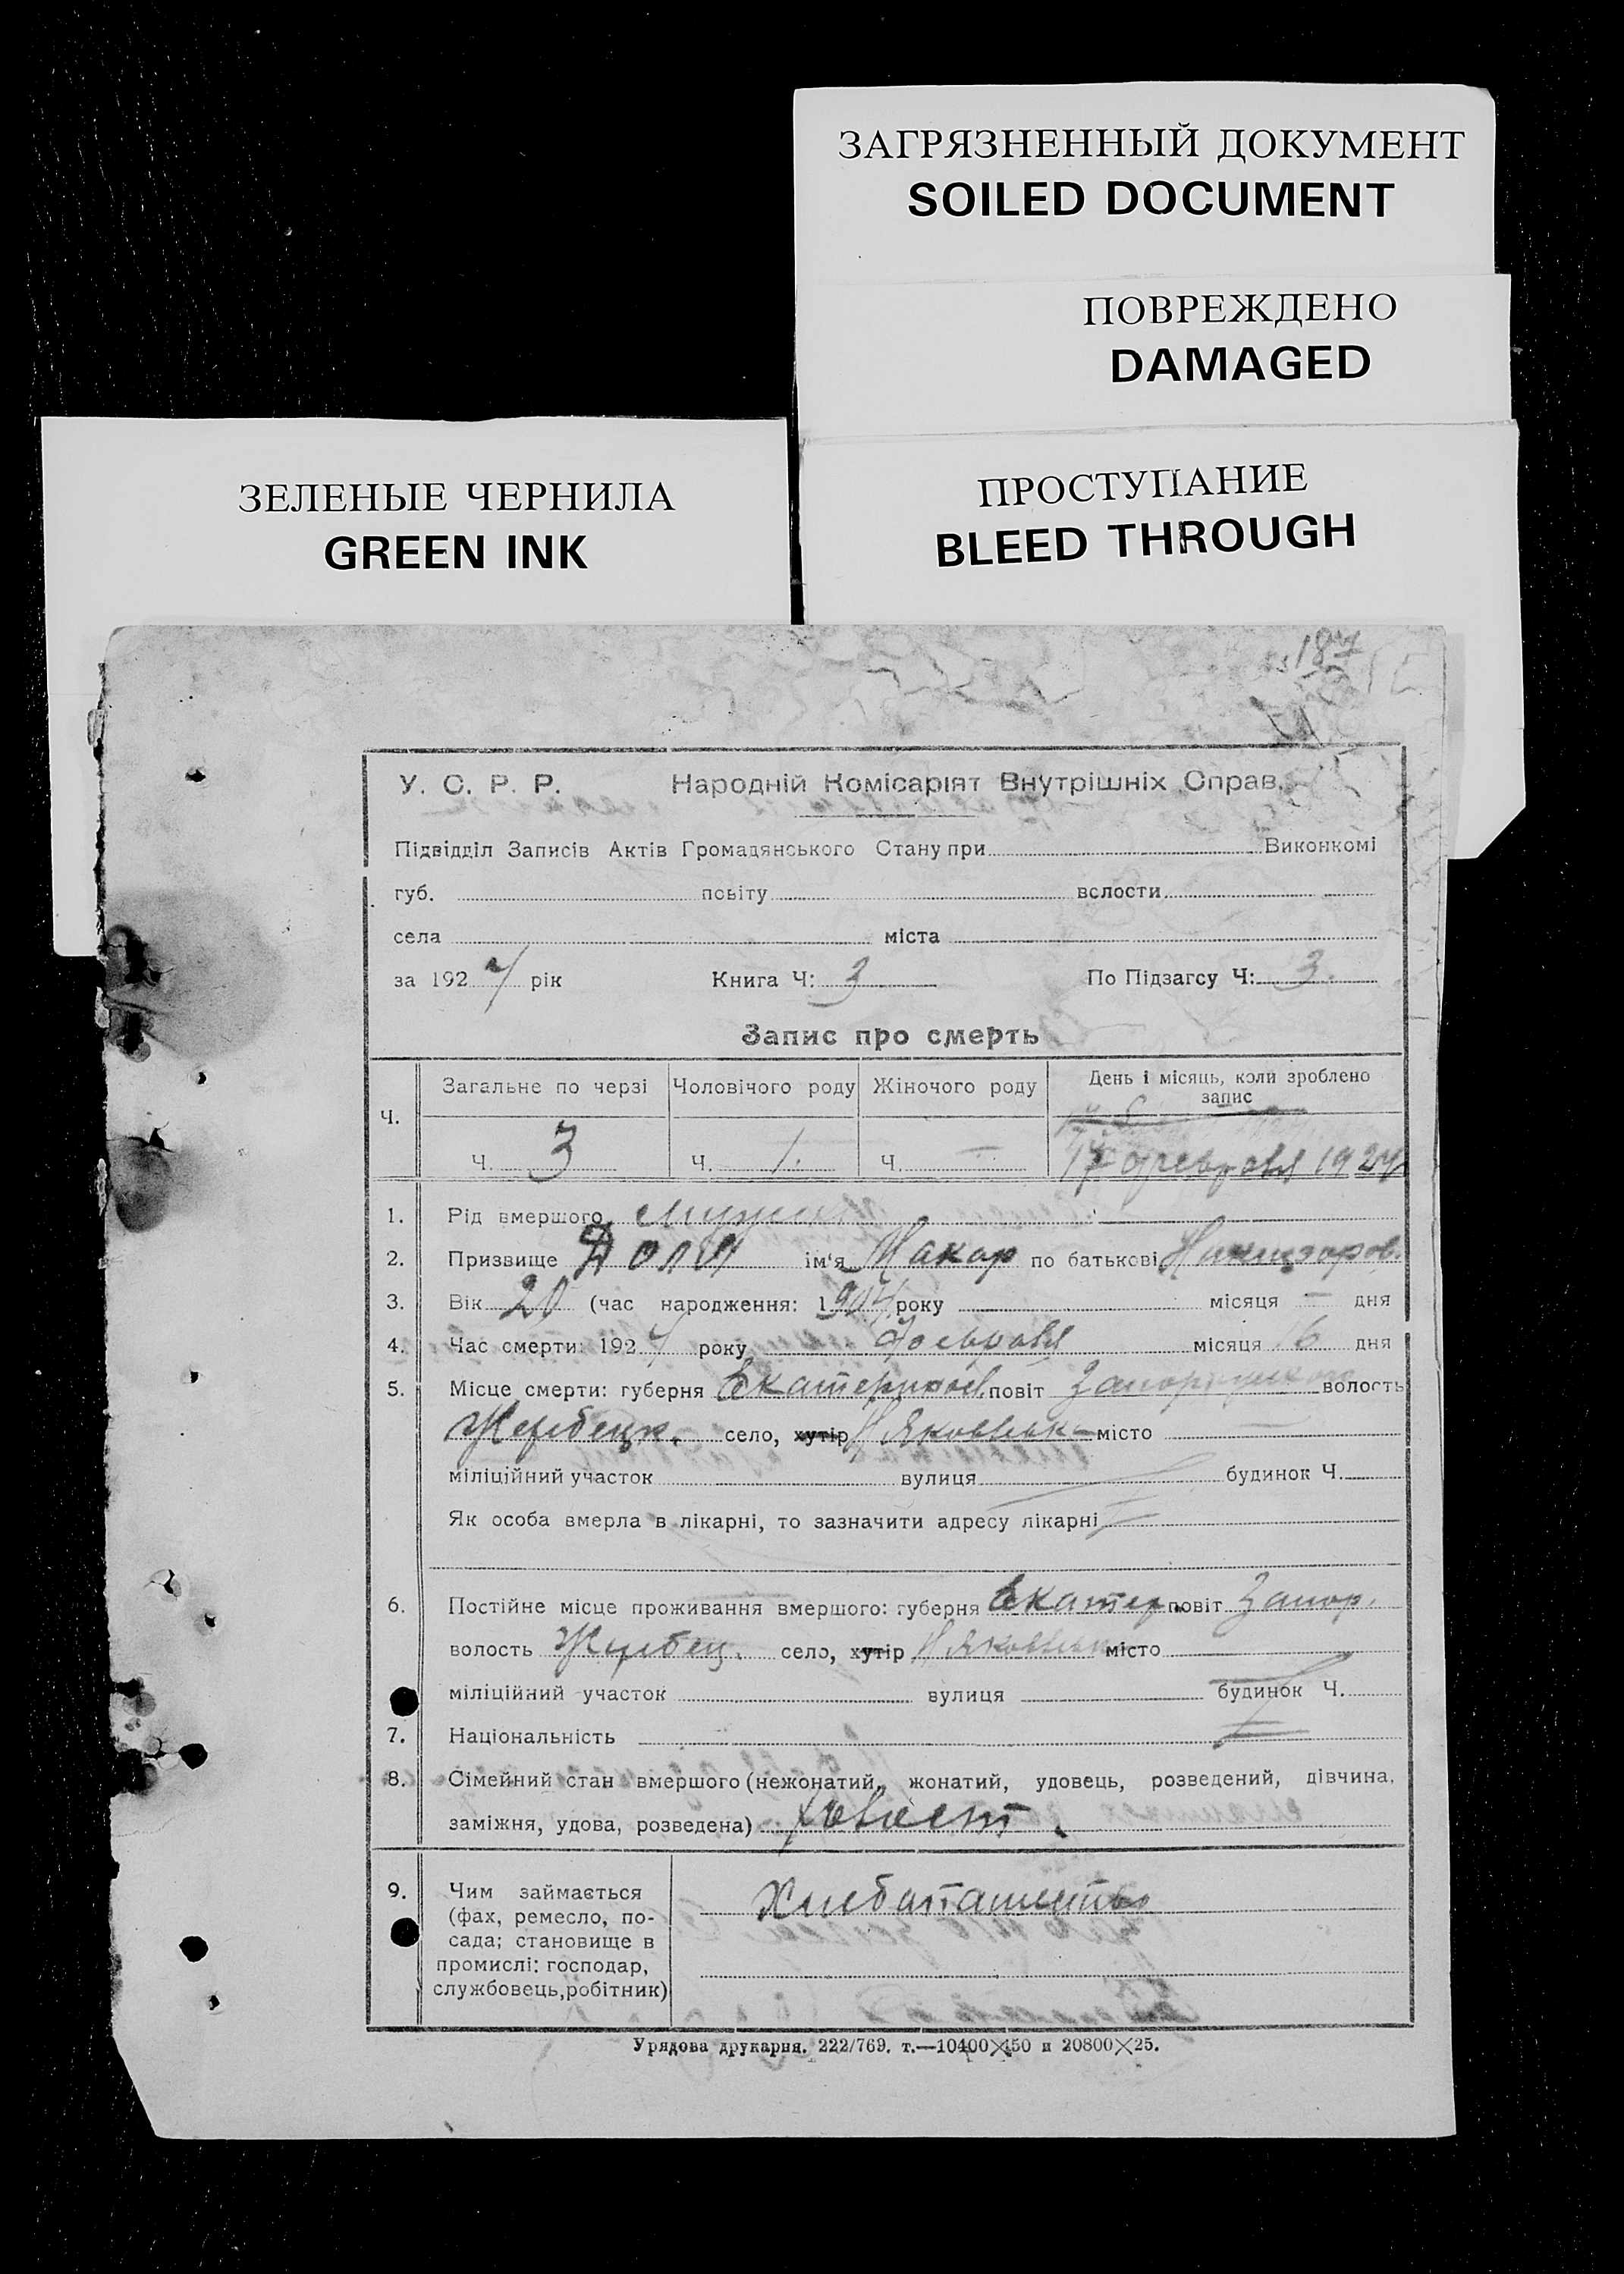 ЗАГРЯЗНЕННЫЙ ДОКУМЕНТ
SOILED DOCUMENT
ПОВРЕЖДЕНО
DAMAGED
ЗЕЛЕНЫЕ ЧЕРНИЛА
GREEN INK
ПРОСТУПАНИЕ
BLEED THROUGH
187
У. С. Р. Р. Народній Комісаріят Внутрішніх Справ.
Підвідділ Записів Актів Громадянського Стану при Виконкомі
губ. повіту волости
села міста
за 1924 рік Книга Ч: 3 По Підзагсу Ч: 3.
Запис про смерть
Ч. Загальне по черзі Чоловічого роду Жіночого роду День і місяць, коли зроблено запис
Ч. 3 Ч. 1. Ч. — 17 февраля 1924
1. Рід вмершого
2. Призвище Доля ім'я Макар по батькові
3. Вік 20 (час народження: 1904 року місяця — дня
4. Час смерти: 1924 року февраля місяця 16 дня
5. Місце смерти: губерня Екатериносл повіт волость
Жеребецк. село, хутір Н Яковлевка місто
міліційний участок вулиця будинок Ч.
Як особа вмерла в лікарні, то зазначити адресу лікарні
6. Постійне місце проживання вмершого: губерня Екатер. повіт Запор.
волость Жеребец. село, хутір Н Яковлевк місто
міліційний участок вулиця будинок Ч.
7. Національність
8. Сімейний стан вмершого (нежонатий, жонатий, удовець, розведений, дівчина,
заміжня, удова, розведена) холост.
9. Чим займається
(фах, ремесло, по-
сада; становище в
промислі: господар,
службовець,робітник)
Хлебопашество
Урядова друкарня. 222/769. т.—10400×150 и 20800×25.